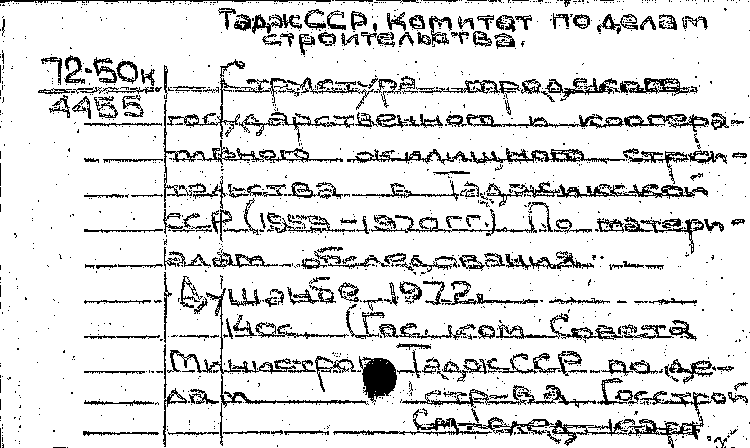 ТаджССР, Комитет по делам
строительства.
72-50к
4455
Структура городского
государственного и коопера-
тивного жилищного строи-
тельства в Таджикской
ССР (1959-1970гг.) По матери-
алам обследования.
Душанбе, 1972.
140с. (Гос. ком Совета
Министров ТаджССР по де-
лам стр-ва, Госстрой
См. след. карт